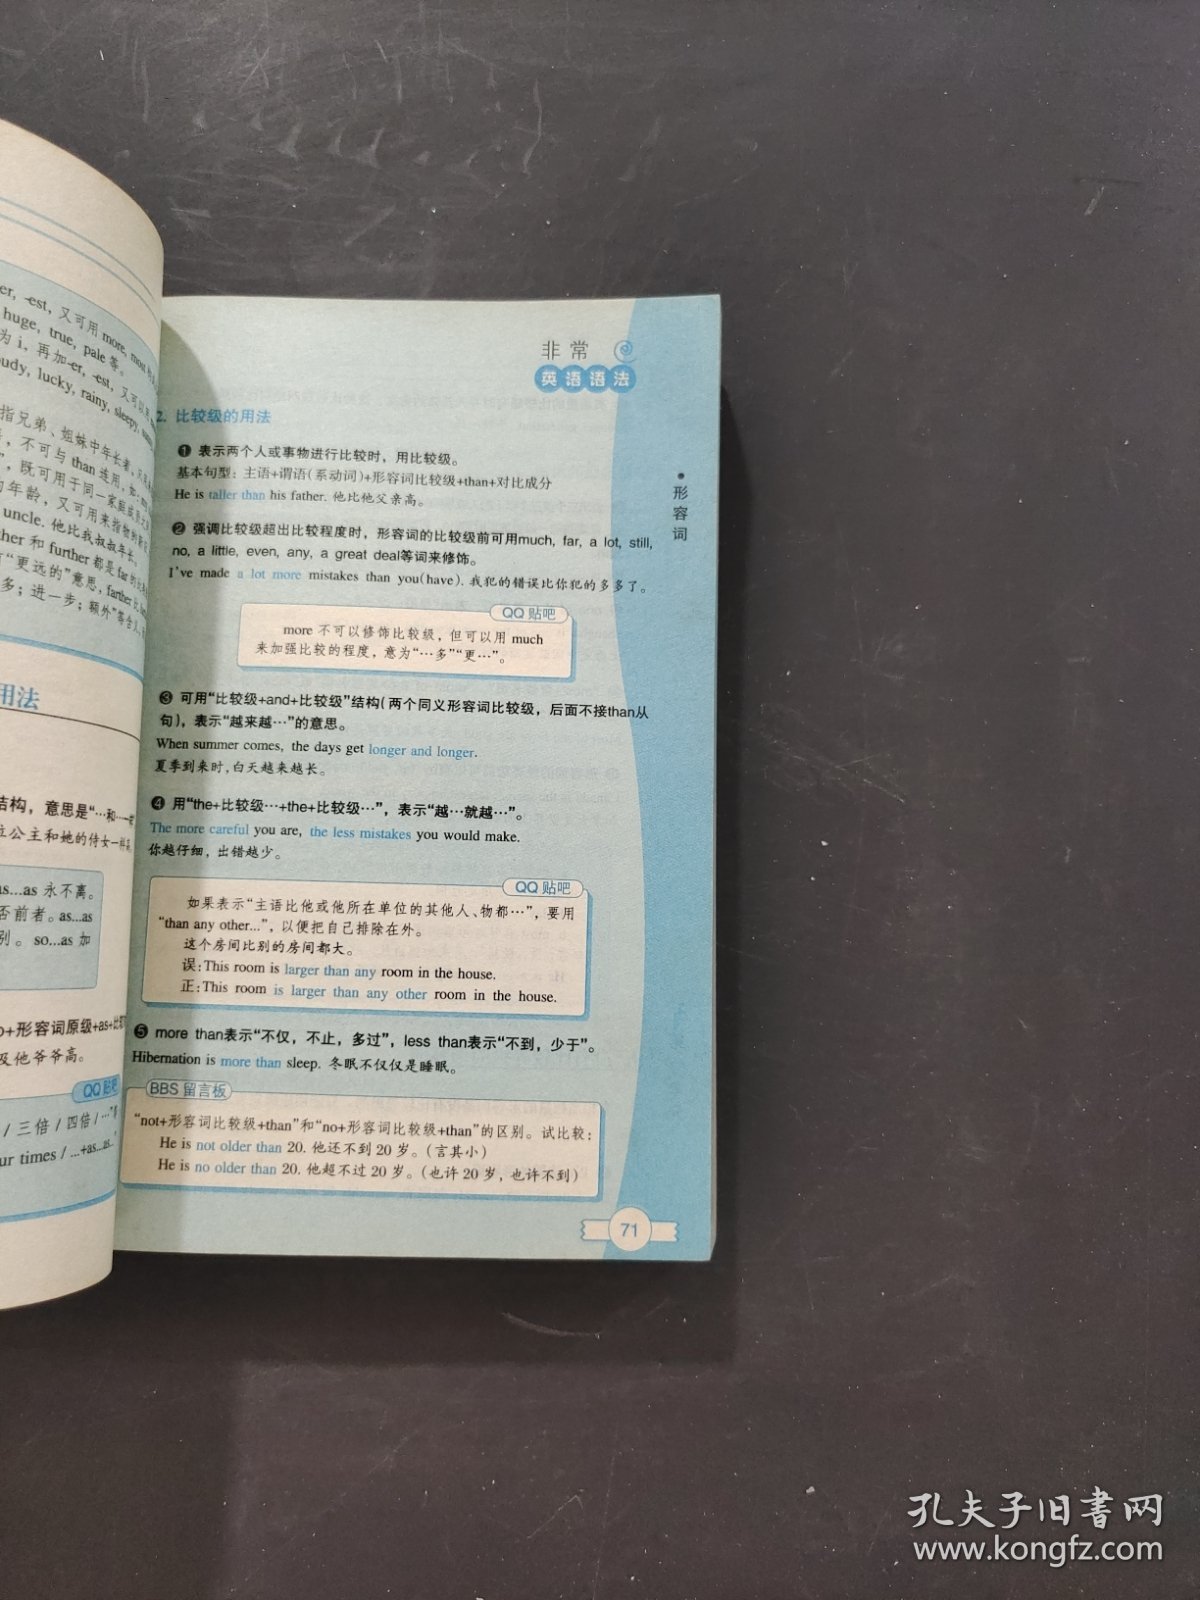 er, -est, 又可用more, most
huge, true, pale等。
为i, 再加-er, -est, 又可以
udy, lucky, rainy, sleepy,
指兄弟、姐妹中年长者,
不可与than连用, 如:
既可用于同一家庭成员之
的年龄, 又可用来指物的新旧
uncle. 他比我叔叔年长。
ther 和 further 都是far的比
“更远的”意思, farther比
多；进一步；额外”等含义,
用法
结构，意思是“…和…一样
公主和她的侍女一样高
as...as 永不离。
否前者。as...as
别。so...as 加
o+形容词原级+as+比较
及他爷爷高。
QQ贴吧
/ 三倍 / 四倍 / …”等
ur times / ...+as...as..
非常
英语语法
形容词
2. 比较级的用法
❶ 表示两个人或事物进行比较时，用比较级。
基本句型：主语+谓语(系动词)+形容词比较级+than+对比成分
He is taller than his father. 他比他父亲高。
❷ 强调比较级超出比较程度时，形容词的比较级前可用much, far, a lot, still,
no, a little, even, any, a great deal等词来修饰。
I've made a lot more mistakes than you(have). 我犯的错误比你犯的多多了。
QQ贴吧
more 不可以修饰比较级，但可以用 much
来加强比较的程度，意为“…多”“更…”。
❸ 可用“比较级+and+比较级”结构(两个同义形容词比较级，后面不接than从
句)，表示“越来越…”的意思。
When summer comes, the days get longer and longer.
夏季到来时,白天越来越长。
❹ 用“the+比较级…+the+比较级…”，表示“越…就越…”。
The more careful you are, the less mistakes you would make.
你越仔细，出错越少。
QQ贴吧
如果表示“主语比他或他所在单位的其他人、物都…”，要用
“than any other...”，以便把自己排除在外。
这个房间比别的房间都大。
误:This room is larger than any room in the house.
正:This room is larger than any other room in the house.
❺ more than表示“不仅，不止，多过”，less than表示“不到，少于”。
Hibernation is more than sleep. 冬眠不仅仅是睡眠。
BBS 留言板
“not+形容词比较级+than”和“no+形容词比较级+than”的区别。试比较：
He is not older than 20. 他还不到20岁。(言其小)
He is no older than 20. 他超不过20岁。(也许20岁，也许不到)
71
孔夫子旧书网
www.kongfz.com